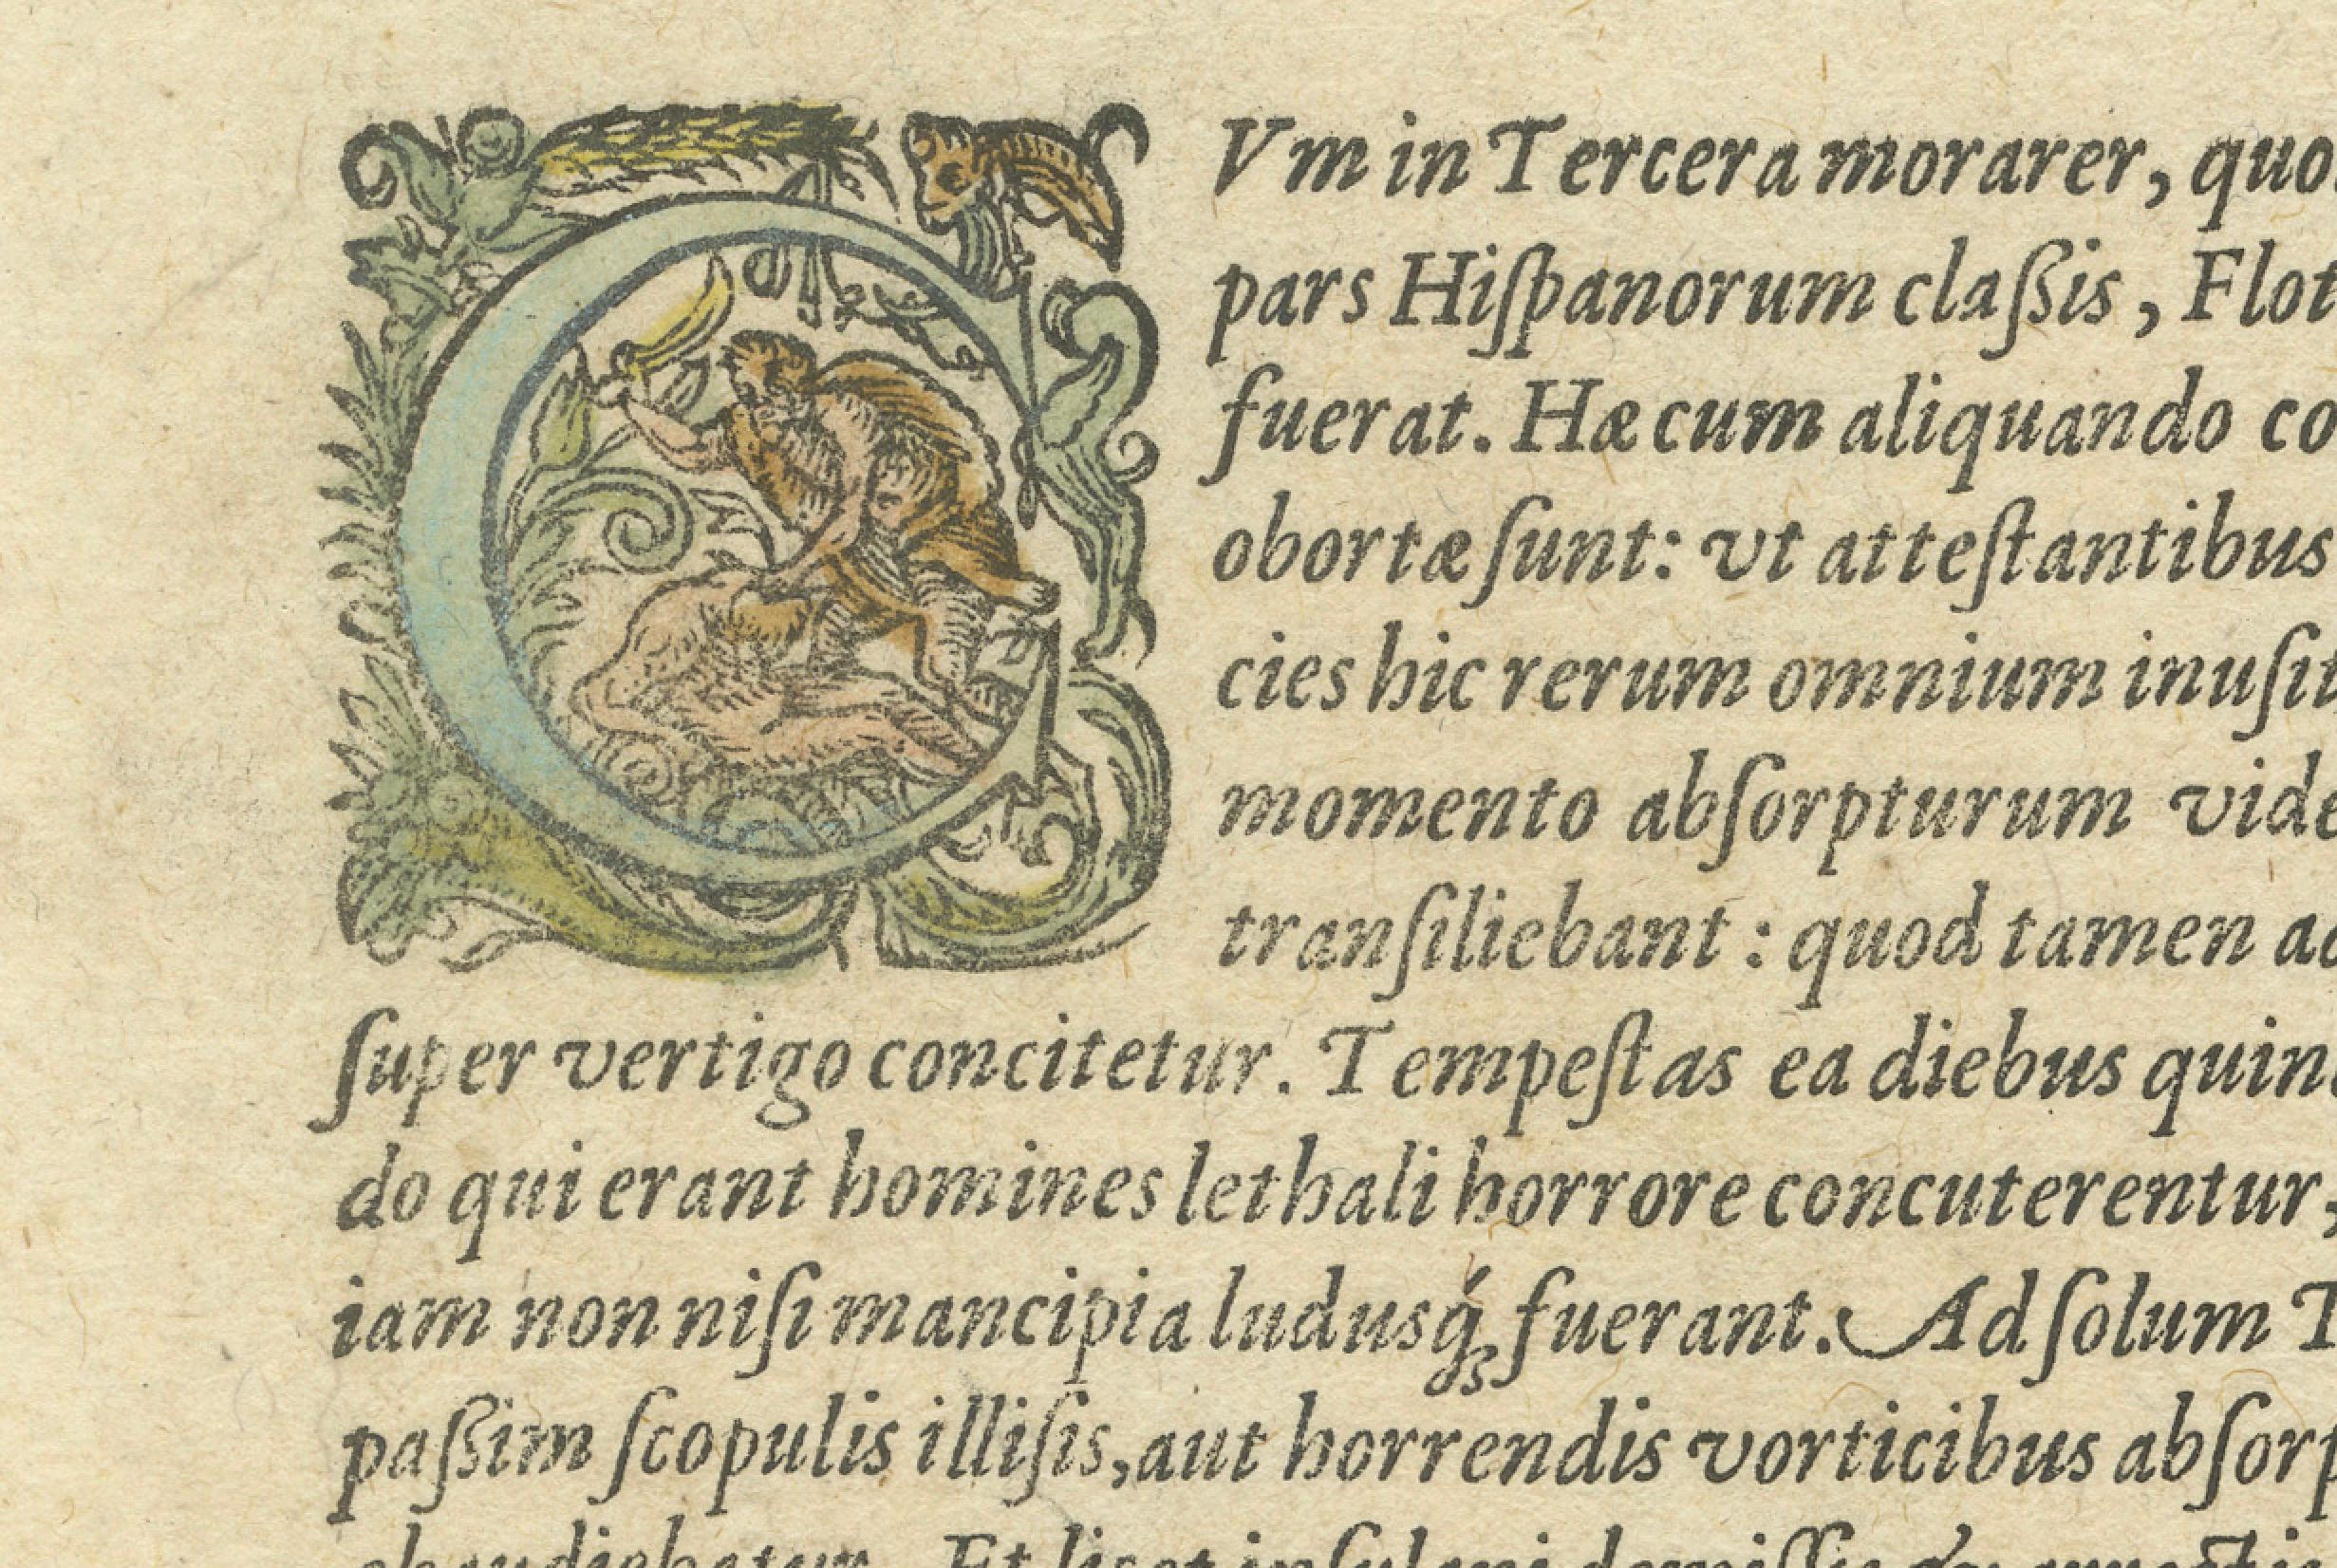 CVm in Tercera morarer, quo
pars Hiſpanorum claſſis, Flot
fuerat. Hæ cum aliquando co
obortæ ſunt: vt atteſtantibus
cies hic rerum omnium inuſit
momento abſorpturum vide
tranſiliebant: quod tamen ac
ſuper vertigo concitetur. Tempeſtas ea diebus quin
do qui erant homines lethali horrore concuterentur,
iam non niſi mancipia ludusq́ꝫ fuerant. Ad ſolum T
paſſim ſcopulis illiſis, aut horrendis vorticibus abſorp